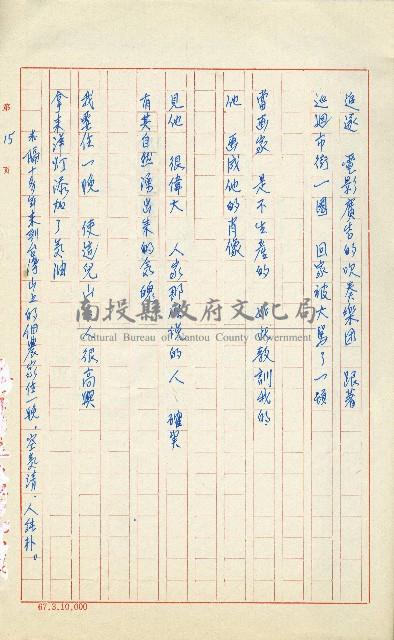 追逐 電影廣告的吹奏樂団 跟著
巡迴市街一圈 回家被大罵了一頓
當画家 是不生産的 如此教訓我的
他 画成他的肖像
見他 很偉大 人家那様説的人 確実
有其自然湧出来的気魄
我要住一晚 使這兒山人很高興
拿来洋灯添加了美油
未隔十多年来到台湾山上的佃農家住一晚，空気清，人純朴。
第 15 頁
南投縣政府文化局
Cultural Bureau of Nantou County Government
67.3.10,000